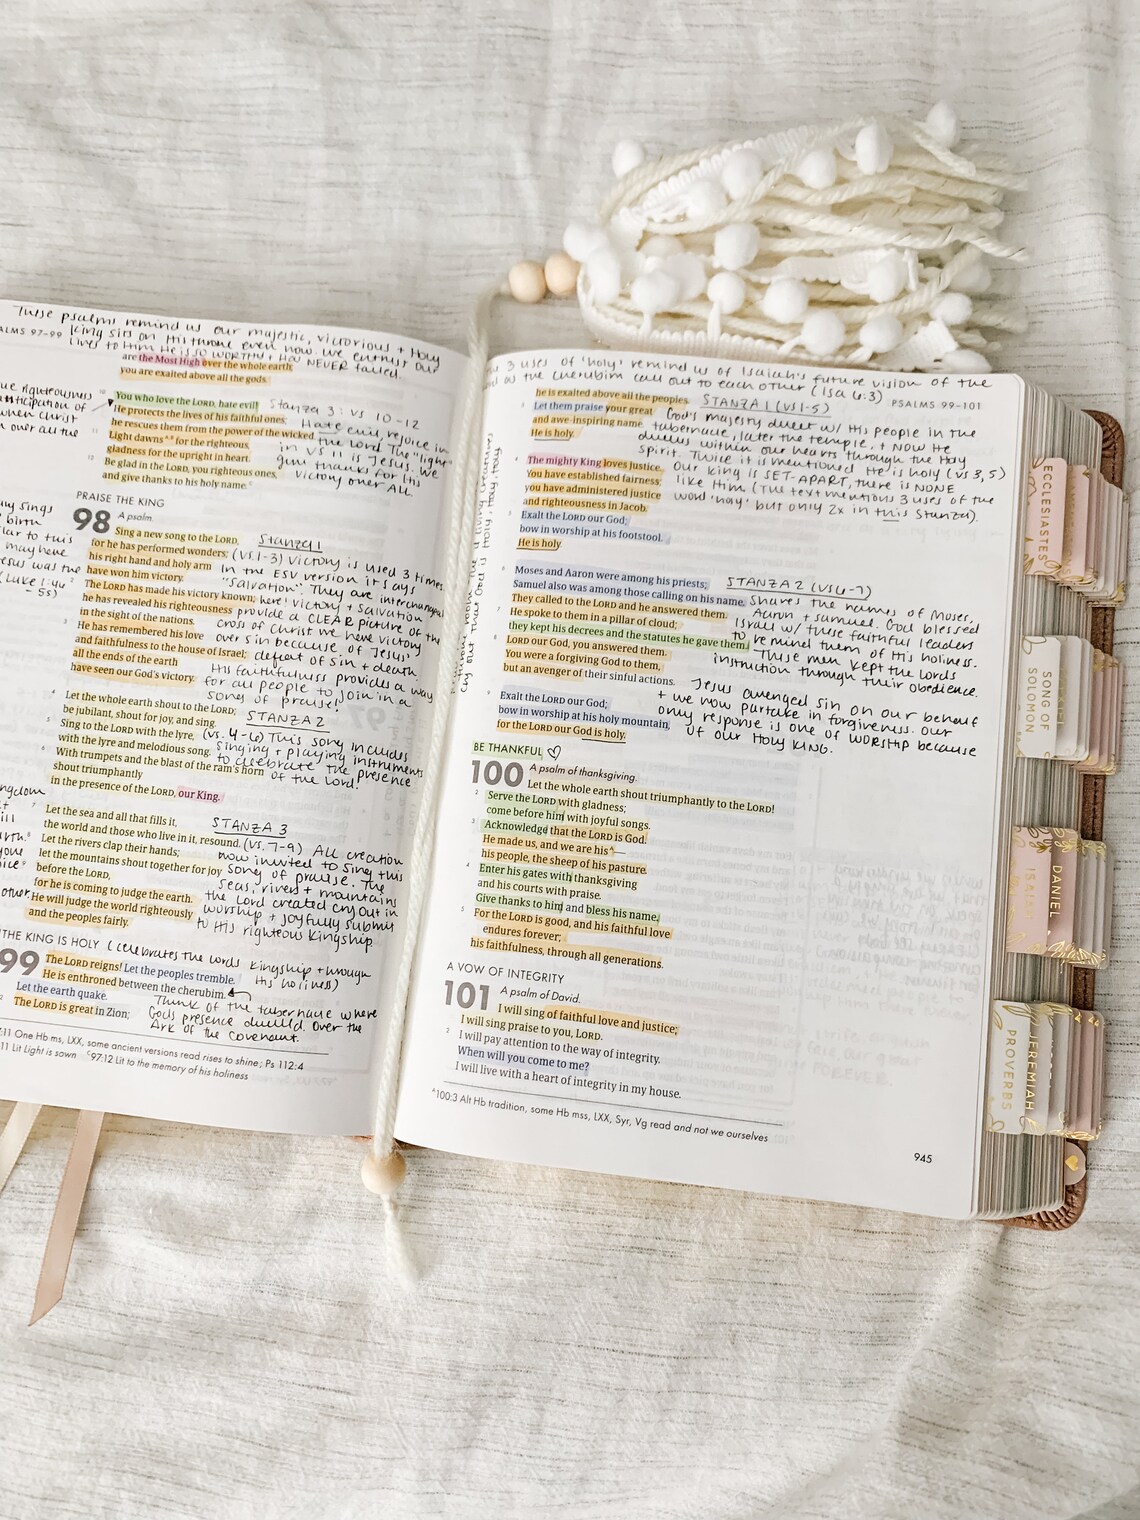 These psalms remind us our majestic, victorious + Holy
PSALMS 97–99 King sits on His throne even now. We entrust our
lives to Him. He is so WORTHY + has NEVER failed.
are the Most High over the whole earth
you are exalted above all the gods.
righteousness
anticipation of
when Christ
over all the
10 You who love the LORD, hate evil! Stanza 3: vs 10-12
He protects the lives of his faithful ones; Hate evil, rejoice in
he rescues them from the power of the wicked. the Lord. The "light"
11 Light dawns for the righteous, in vs 11 is Jesus. We
gladness for the upright in heart. give thanks for His
12 Be glad in the LORD, you righteous ones, victory over ALL
and give thanks to his holy name.
PRAISE THE KING
98 A psalm.
Sing a new song to the LORD, Stanza 1
for he has performed wonders; (vs.1-3) Victory is used 3 times.
his right hand and holy arm In the ESV version it says
have won him victory. "Salvation". They are interchanged
2 The LORD has made his victory known; here! Victory + Salvation
he has revealed his righteousness provide a CLEAR picture of the
in the sight of the nations. cross of Christ we have victory
3 He has remembered his love over sin because of Jesus'
and faithfulness to the house of Israel; defeat of sin + death.
all the ends of the earth His faithfulness provides a way
have seen our God's victory. for all people to join in a
song of praise!
4 Let the whole earth shout to the LORD;
be jubilant, shout for joy, and sing. STANZA 2
5 Sing to the LORD with the lyre, (vs. 4-6) This song includes
with the lyre and melodious song. singing + playing instruments
6 With trumpets and the blast of the ram's horn to celebrate the presence
shout triumphantly of the Lord!
in the presence of the LORD, our King.
7 Let the sea and all that fills it, STANZA 3
the world and those who live in it, resound. (vs. 7-9) All creation
8 Let the rivers clap their hands; now invited to sing this
let the mountains shout together for joy song of praise. The
9 before the LORD, seas, rivers + mountains
for he is coming to judge the earth. the Lord created cry out in
He will judge the world righteously worship + joyfully submit
and the peoples fairly. to His righteous Kingship
THE KING IS HOLY (celebrates the Lords Kingship + through His holiness)
99 The LORD reigns! Let the peoples tremble.
He is enthroned between the cherubim.
Let the earth quake. Think of the tabernacle where
2 The LORD is great in Zion; Gods presence dwelled. Over the
Ark of the Covenant.
:11 One Hb ms, LXX, some ancient versions read rises to shine; Ps 112:4
11 Lit Light is sown 97:12 Lit to the memory of his holiness
3 uses of 'holy' remind us of Isaiah's future vision of the
as the cherubim call out to each other (Isa 6:3) PSALMS 99–101
he is exalted above all the peoples. STANZA 1 (vs1-5)
3 Let them praise your great God's majesty dwelt w/ His people in the
and awe-inspiring name. tabernacle, later the temple, + now He
He is holy. dwells within our hearts through the Holy
Spirit. Twice it is mentioned He is holy (vs 3,5)
4 The mighty King loves justice. our King is SET-APART, there is NONE
You have established fairness; like Him (The text mentions 3 uses of the
you have administered justice word 'holy' but only 2x in this Stanza).
and righteousness in Jacob.
5 Exalt the LORD our God;
bow in worship at his footstool.
He is holy.
6 Moses and Aaron were among his priests; STANZA 2 (vs6-7)
Samuel also was among those calling on his name. Shares the names of Moses,
They called to the LORD and he answered them. Aaron + Samuel. God blessed
7 He spoke to them in a pillar of cloud; Israel w/ these faithful leaders
they kept his decrees and the statutes he gave them. to remind them of His holiness.
8 LORD our God, you answered them. These men kept the Lords
You were a forgiving God to them, instruction through their obedience.
but an avenger of their sinful actions.
Jesus avenged sin on our behalf
9 Exalt the LORD our God; + we now partake in forgiveness. Our
bow in worship at his holy mountain, only response is one of WORSHIP because
for the LORD our God is holy. of our Holy KING.
BE THANKFUL
100 A psalm of thanksgiving.
Let the whole earth shout triumphantly to the LORD!
2 Serve the LORD with gladness;
come before him with joyful songs.
3 Acknowledge that the LORD is God.
He made us, and we are his
his people, the sheep of his pasture.
4 Enter his gates with thanksgiving
and his courts with praise.
Give thanks to him and bless his name.
5 For the LORD is good, and his faithful love
endures forever;
his faithfulness, through all generations.
A VOW OF INTEGRITY
101 A psalm of David.
I will sing of faithful love and justice;
I will sing praise to you, LORD.
2 I will pay attention to the way of integrity.
When will you come to me?
I will live with a heart of integrity in my house.
100:3 Alt Hb tradition, some Hb mss, LXX, Syr, Vg read and not we ourselves
945
ECCLESIASTES
SONG OF
SOLOMON
DANIEL
ISAIAH
JEREMIAH
PROVERBS